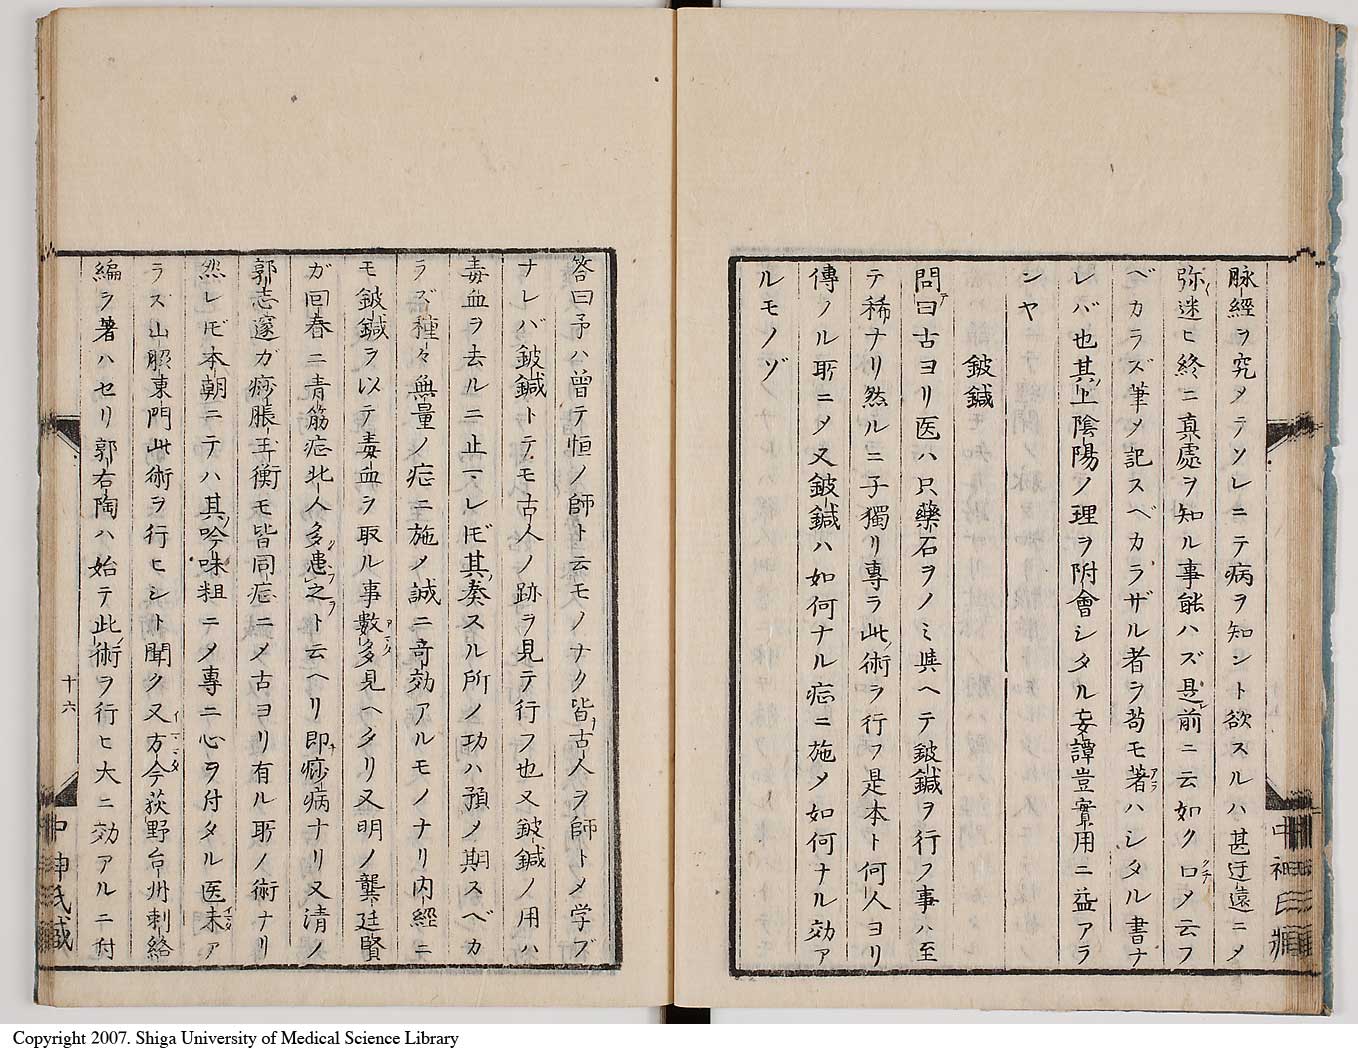 脉經ヲ究メテソレニテ病ヲ知ント欲スルハ甚迂遠ニメ
弥迷ヒ終ニ真處ヲ知ル事能ハズ是前ニ云如ク口メ云フ
ベカラズ筆メ記スベカラザル者ヲ苟モ著ハシタル書ナ
レバ也其上陰陽ノ理ヲ附會シタル妄譚豈實用ニ益アラ
シヤ
鈹鍼
問曰古ヨリ医ハ只藥石ヲノミ與ヘテ鈹鍼ヲ行フ事ハ至
テ稀ナリ然ルニ子獨リ專ラ此術ヲ行フ是本ト何人ヨリ
傳ノル所ニメ又鈹鍼ハ如何ナル症ニ施メ如何ナル効ア
ルモノゾ
答曰予ハ曾テ恒ノ師ト云モノナク皆古人ヲ師トメ学ブ
ナレバ鈹鍼トテモ古人ノ跡ヲ見テ行フ也又鈹鍼ノ用ハ
毒血ヲ去ルニ止マレ𪜈其奏スル所ノ功ハ預メ期スベカ
ラズ種々無量ノ症ニ施メ誠ニ奇効アルモノナリ内經ニ
モ鈹鍼ヲ以テ毒血ヲ取ル事數多見ヘタリ又明ノ龔廷賢
ガ回春ニ青筋症北人多患之ト云ヘリ即痧病ナリ又清ノ
郭志邃ガ痧脹玉衡モ皆同症ニメ古ヨリ有ル所ノ術ナリ
然レ𪜈本朝ニテハ其吟味粗ニメ專ニ心ヲ付タル医未ア
ラズ山脇東門此術ヲ行ヒシト聞ク又方今荻野台州刺絡
編ヲ著ハセリ郭右陶ハ始テ此術ヲ行ヒ大ニ効アルニ付
十六
中神氏藏